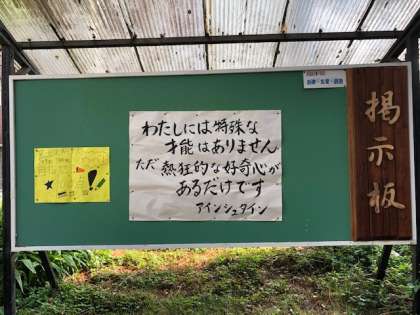 わたしには特殊な
才能はありません
ただ 熱狂的な好奇心が
あるだけです
アインシュタイン
掲示板